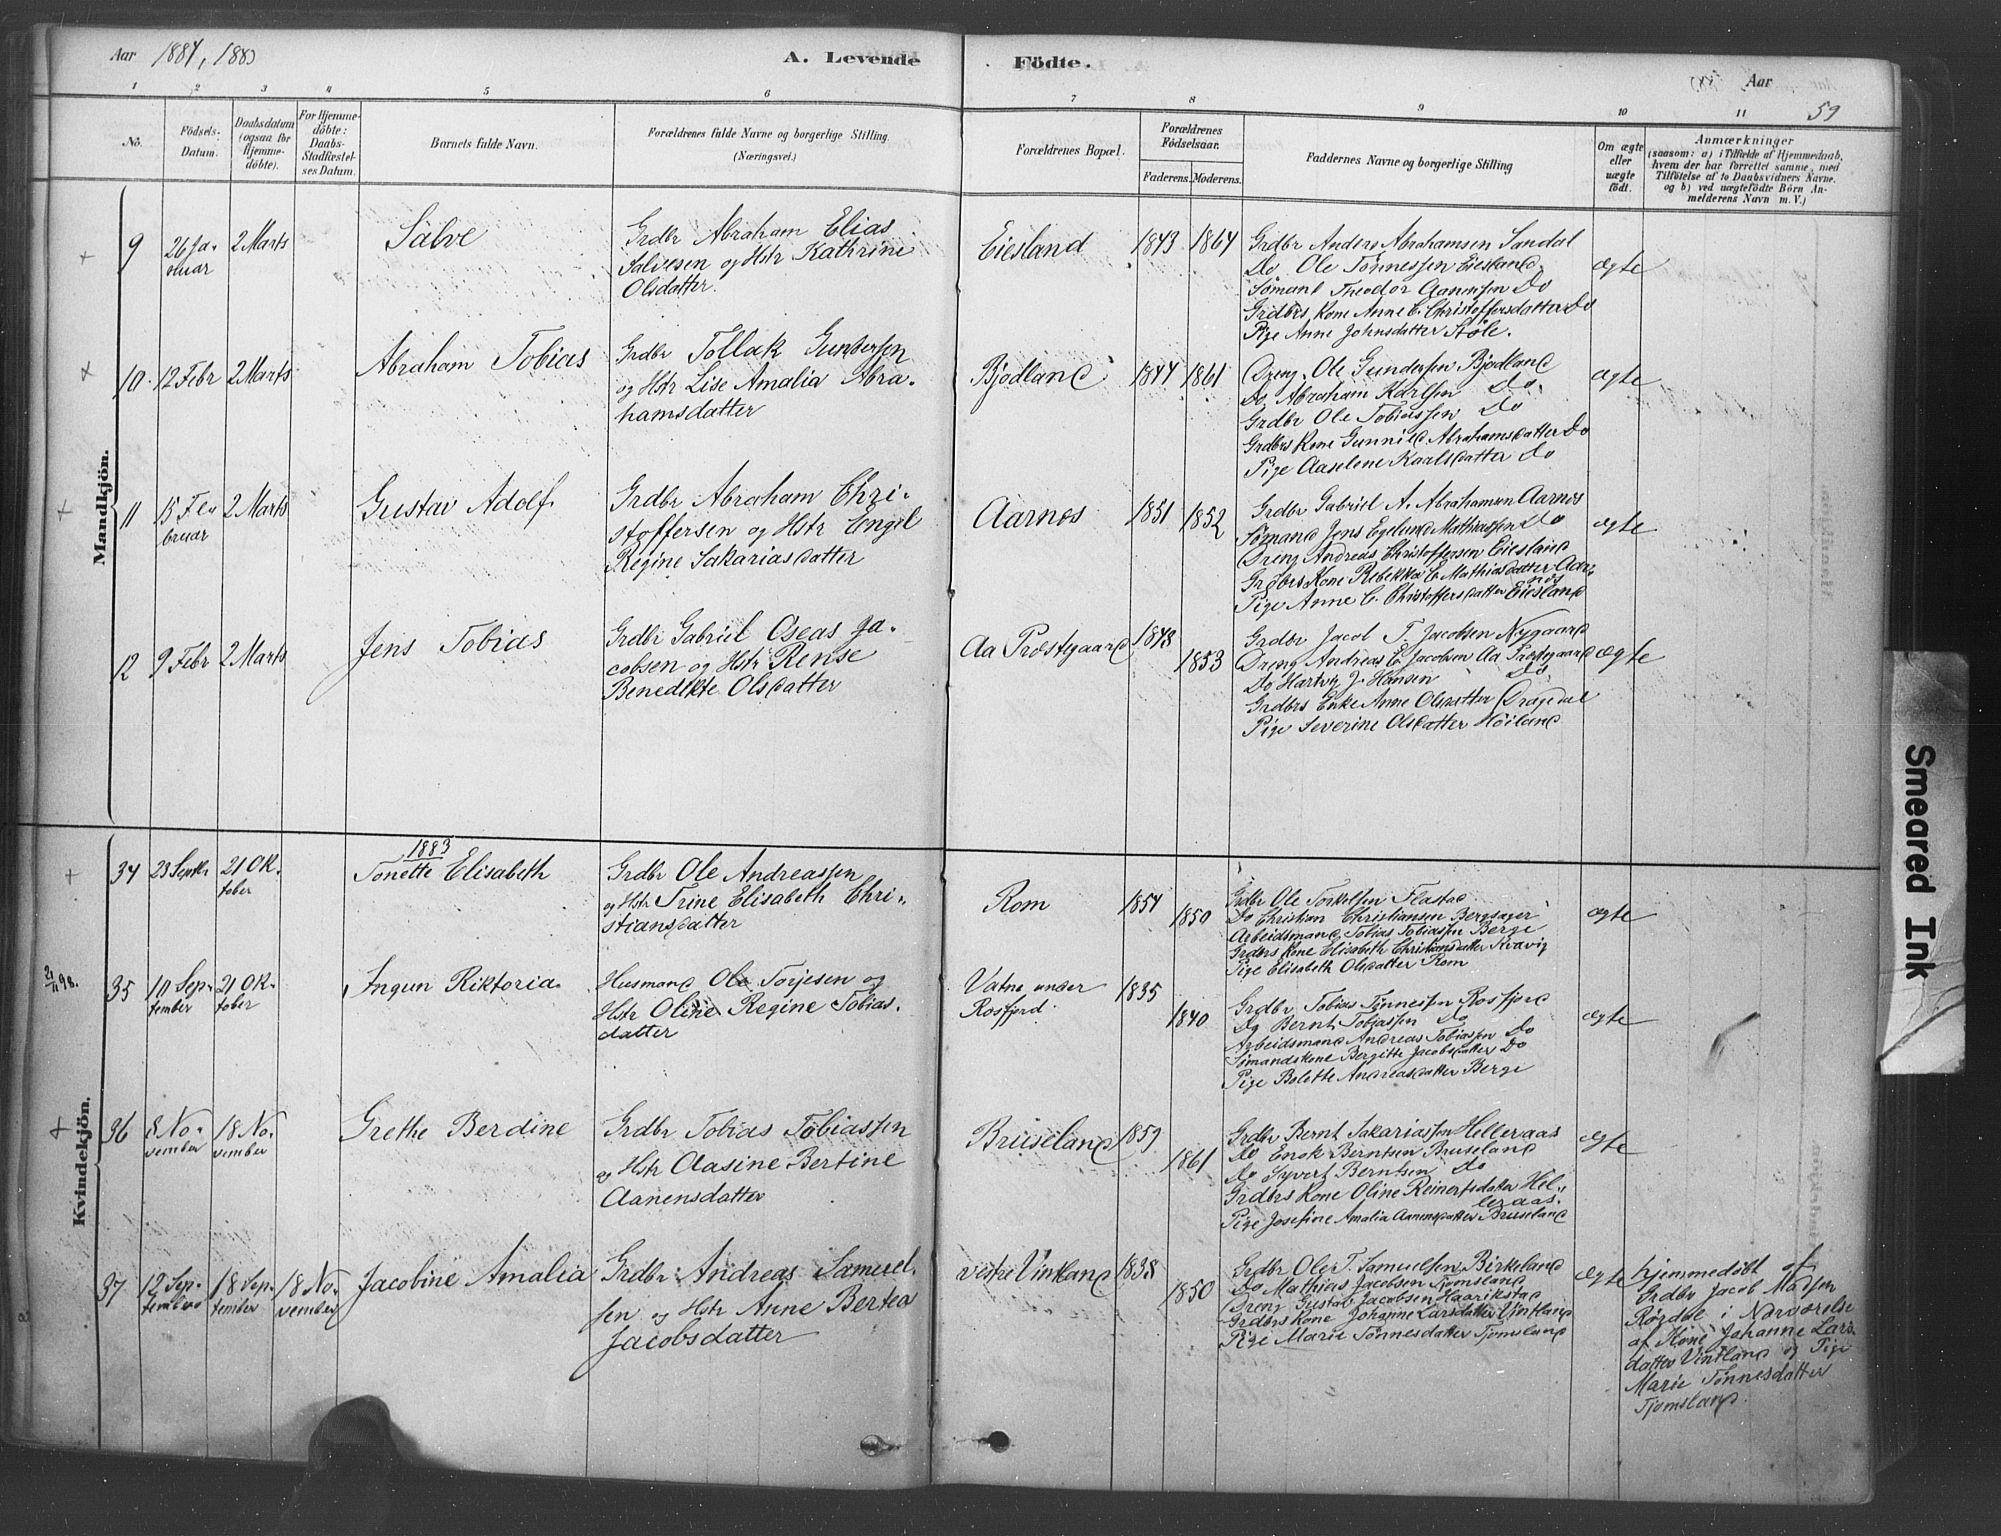 Aar 1884, 1883
A. Levende Födte.
Aar
59
1 2 3 4 5 6 7 8 9 10 11
No.
Födsels-Datum.
Daabsdatum (ogsaa for Hjemmedöbte).
For Hjemmedöbte: Daabs-Stadfæstelses Datum.
Barnets fulde Navn.
Forældrenes fulde Navne og borgerlige Stilling. (Næringsvei.)
Forældrenes Bopæl.
Forældrenes Födselsaar.
Faderens. Moderens.
Faddernes Navne og borgerlige Stilling
Om ægte eller uægte födt.
Anmærkninger
(saasom: a) i Tilfælde af Hjemmedaab, hvem der har forrettet samme, med Tilföielse af to Daabsvidners Navne, og b) ved uægtefödte Börn Anmelderens Navn m. V.)
Mandkjön.
9
26 Januar
2 Marts
Salve
Grdbr Abraham Elias
Salvesen og Hstr Kathrine
Olsdatter.
Eiesland
1843 1864
Grdbr Anders Abrahamsen Sandal
Do Ole Tønnessen Eiesland
Sømand Theodor Aanensen Do
Grdbrs Kone Anne C. Christoffersdatter Do
Pige Anne Johnsdatter Støle.
ægte
10.
12 Febr
2 Marts
Abraham Tobias
Grdbr Tollak Gundersen
og Hstr Lise Amalia Abra-
hamsdatter
Bjodland
1844 1861
Dreng Ole Gundersen Bjodland
Do Abraham Karlsen Do.
Grdbr Ole Tobiassen Do
Grdbrs Kone Gunnild Abrahamsdatter Do
Pige Aaselene Karlsdatter Do
ægte
11
15 Februar
2 Marts
Gustav Adolf.
Grdbr Abraham Chri-
stoffersen og Hstr Engel
Regine Sakariasdatter
Aarnes
1851 1852
Grdbr Gabriel A. Abrahamsen Aarnes
Sømand Jens Egelund Mathiassen Do
Dreng Andreas Christoffersen Eiesland
Grdbrs Kone Rebekka E. Mathiasdatter Aar-
nes
Pige Anne C. Christoffersdatter Eiesland
ægte
12
9 Febr
2 Marts
Jens Tobias
Grdbr Gabriel Oseas Ja-
cobsen og Hstr Rense
Benedikte Olsdatter
Aa Præstegaard
1848
1853
Grdbr Jacob T. Jacobsen Nygaard
Dreng Andreas E. Jacobsen Aa Præstegaard
Do Hartvig J. Hansen Do
Grdbrs Enke Anne Olsdatter Dragedal
Pige Severine Olsdatter Høiland
ægte
Kvindekjön.
1883
34
23 Septbr
21 Oktober
Tonette Elisabeth
Grdbr Ole Andreassen
og Hstr Trine Elisabeth Chri-
stiansdatter
Rom
1854
1850
Grdbr Ole Torkelsen Flastad
Do Christian Christiansen Bergsager
Arbeidsmand Tobias Tobiassen Berge
Grdbrs Kone Elisabeth Christiansdatter Kvavig
Pige Elisabeth Olsdatter Rom
ægte
35
10 September
21 Oktober
Ingun Viktoria.
Husmand Ole Torjesen og
Hstr Oline Regine Tobias-
datter
Vatne under
Rosfjord.
1835
1840
Grdbr Tobias Tønnesen Rosfjord
Do Bernt Tobiassen Do
Arbeidsmand Andreas Tobiassen Do
Sømandskone Bergitte Jacobsdatter Do
Pige Bolette Andreasdatter Berge
ægte
36
8 November
18 November
Grethe Berdine
Grdbr Tobias Tobiassen
og Hstr Aasine Bertine
Aanensdatter
Bruseland
1859
1861
Grdbr Bernt Sakariassen Helleraas
Do Enok Berntsen Bruseland
Do Syvert Berntsen Do
Grdbrs Kone Oline Reinertsdatter Hel-
leraas.
Pige Josefine Amalia Aanensdatter Bruseland
ægte
37
12 September
18 September
18 November
Jacobine Amalia
Grdbr Andreas Samuel-
sen og Hstr Anne Bertea
Jacobsdatter
vestre Vintland
1838
1850
Grdbr Ole T. Samuelsen Birkeland
Do Mathias Jacobsen Tjomsland
Dreng Gustav Jacobsen Haarikstad
Grdbrs Kone Johanne Larsdatter Vintland
Pige Marie Tønnesdatter Tjomsland
ægte
hjemmedøbt af
Grdbr Jacob
Rørdal i Nærværelse
af Kone Johanne Lars-
datter Vintland og Pige
Marie Tønnesdatter
Tjomsland.
Smeared Ink